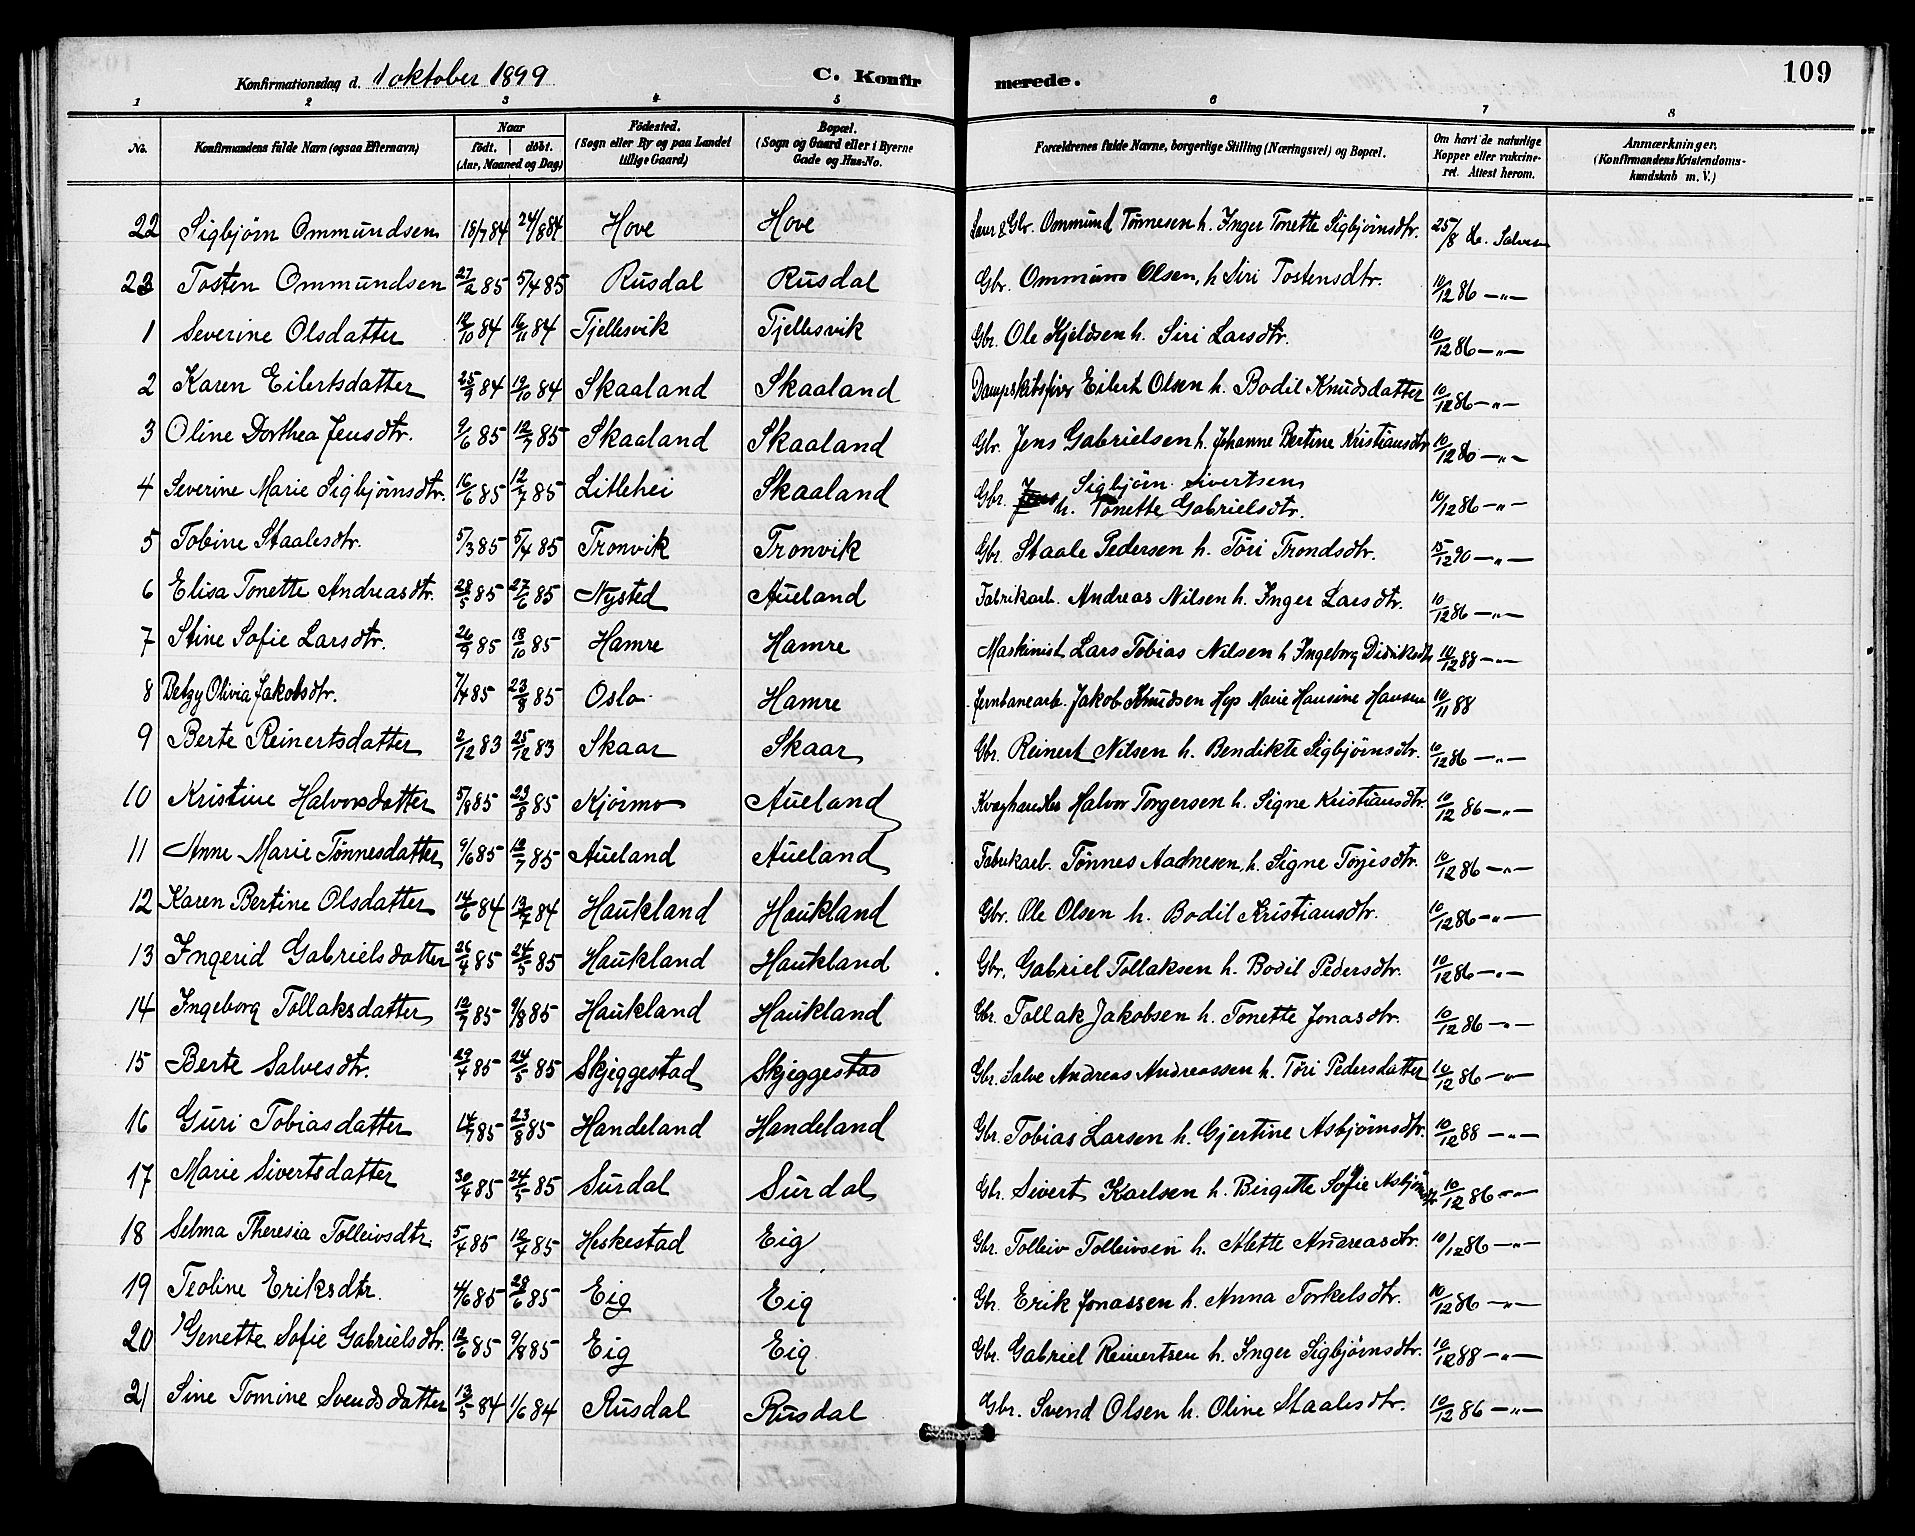 Konfirmationsdag d. 1 oktober 1899 C. Konfirmerede. 109
1 2 3 4 5 6 7 8
No. Konfirmandens fulde Navn (ogsaa Efternavn) Naar født. døbt. (Aar, Maaned og Dag) Fødested. (Sogn eller By og paa Landet tillige Gaard) Bopæl. (Sogn og Gaard eller i Byerne Gade og Hus-No. Forældrenes fulde Navne, borgerlige Stilling (Næringsvei) og Bopæl. Om havt de naturlige Kopper eller vakcineret. Attest herom. Anmærkninger. (Konfirmandens Kristendomskundskab m. V.)
22 Sigbjørn Ommundsen 18/7 84 24/8 84 Hove Hove & Gbr. Ommund Tønnesen h. Inger Tonette Sigbjørnsdtr. 25/8
23 Tosten Ommundsen 27/2 85 5/4 85 Rusdal Rusdal Gbr. Ommund Olsen, h Siri Tostensdtr. 10/12 86 —„—
1 Severine Olsdatter 12/10 84 16/11 84 Tjellesvik Tjellesvik Gbr. Ole Kjeldsen h. Siri Larsdtr. 10/12 86 —„—
2 Karen Eilertsdatter 25/9 84 19/10 84 Skaaland Skaaland Eilert Olsen h. Bodil Knudsdatter 10/12 86 —„—
3 Oline Dorthea Jensdtr. 9/6 85 12/7 85 Skaaland Skaaland Gbr. Jens Gabrielsen h. Johanne Bertine Kristiansdtr 10/12 86 —„—
4 Severine Marie Sigbjørnsdtr. 16/6 85 12/7 85 Litlehei Skaaland Gbr. Jens Sigbjørn Sivertsen
h. Tonette Gabrielsdtr. 10/12 86 —„—
5 Tobine Staalesdtr. 5/3 85 5/4 85 Tronvik Tronvik Gbr. Staale Pedersen h. Tori Trondsdtr. 15/12 90 —„—
6 Elisa Tonette Andreasdtr. 28/5 85 27/6 85 Nysted Aueland Fabrikarb. Andreas Nilsen h. Inger Larsdtr. 10/12 86 —„—
7 Stine Sofie Larsdtr. 26/9 85 18/10 85 Hamre Hamre Maskinist Lars Tobias Nilsen h Ingeborg Didriksdtr 10/12 88 —„—
8 Betzy Olivia Jakobsdtr. 7/4 85 23/8 85 Oslo Hamre Jernbanearb. Jakob Knudsen Hgs Marie Hansine Hansen 10/11 88
9 Berte Reinertsdatter 2/12 83 25/12 83 Skaar Skaar Gbr. Reinert Nilsen h. Bendikte Sigbjørnsdtr. 10/12 86 —„—
10 Kristine Halvorsdatter 5/8 85 23/8 85 Kjørmo Aueland Kvæghandler Halvor Torgersen h. Signe Kristiansdtr. 10/12 86 —„—
11 Anne Marie Tønnesdatter 9/6 85 12/7 85 Aueland Aueland Fabrikarb. Tønnes Aadnesen, h. Signe Torjesdtr. 10/12 86 —„—
12 Karen Bertine Olsdatter 14/6 84 13/7 84 Haukland Haukland Gbr. Ole Olsen h. Bodil Kristiansdtr. 10/12 86 —„—
13 Ingerid Gabrielsdatter 26/4 85 24/5 85 Haukland Haukland Gbr. Gabriel Tollaksen h. Bodil Pedersdtr. 10/12 86 —„—
14 Ingeborg Tollaksdatter 12/7 85 9/8 85 Haukland Haukland Gbr. Tollak Jakobsen h. Tonette Jonasdtr. 10/12 86 —„—
15 Berte Salvesdtr. 29/4 85 24/5 85 Skjeggestad Skjeggestad Gbr. Salve Andreas Andreassen h. Tøri Pedersdatter 10/12 86 —„—
16 Guri Tobiasdatter 14/7 85 23/8 85 Handeland Handeland Gbr. Tobias Larsen h. Gjertine Asbjørnsdtr. 10/12 88 —„—
17 Marie Sivertsdatter 30/4 85 24/5 85 Surdal Surdal Gbr. Sivert Karlsen h. Birgitte Sofie Asbjørnsdtr 10/12 86 —„—
18 Selma Theresia Tolleivsdtr. 5/4 85 12/4 85 Heskestad Eig Gbr. Tolleiv Tolleivsen h. Alette Andreasdtr. 10/12 86 —„—
19 Teoline Eriksdtr. 4/6 85 28/6 85 Eig Eig Gbr. Erik Jonassen h. Anna Torkelsdtr. 10/12 86 —„—
20 Genette Sofie Gabrielsdtr. 12/6 85 9/8 85 Eig Eig Gbr. Gabriel Reinertsen h. Inger Sigbjørnsdtr. 10/12 88 —„—
21 Sine Tomine Svendsdatter 13/5 84 1/6 84 Rusdal Rusdal Gbr. Svend Olsen h. Oline Staalesdtr. 10/12 86 —„—